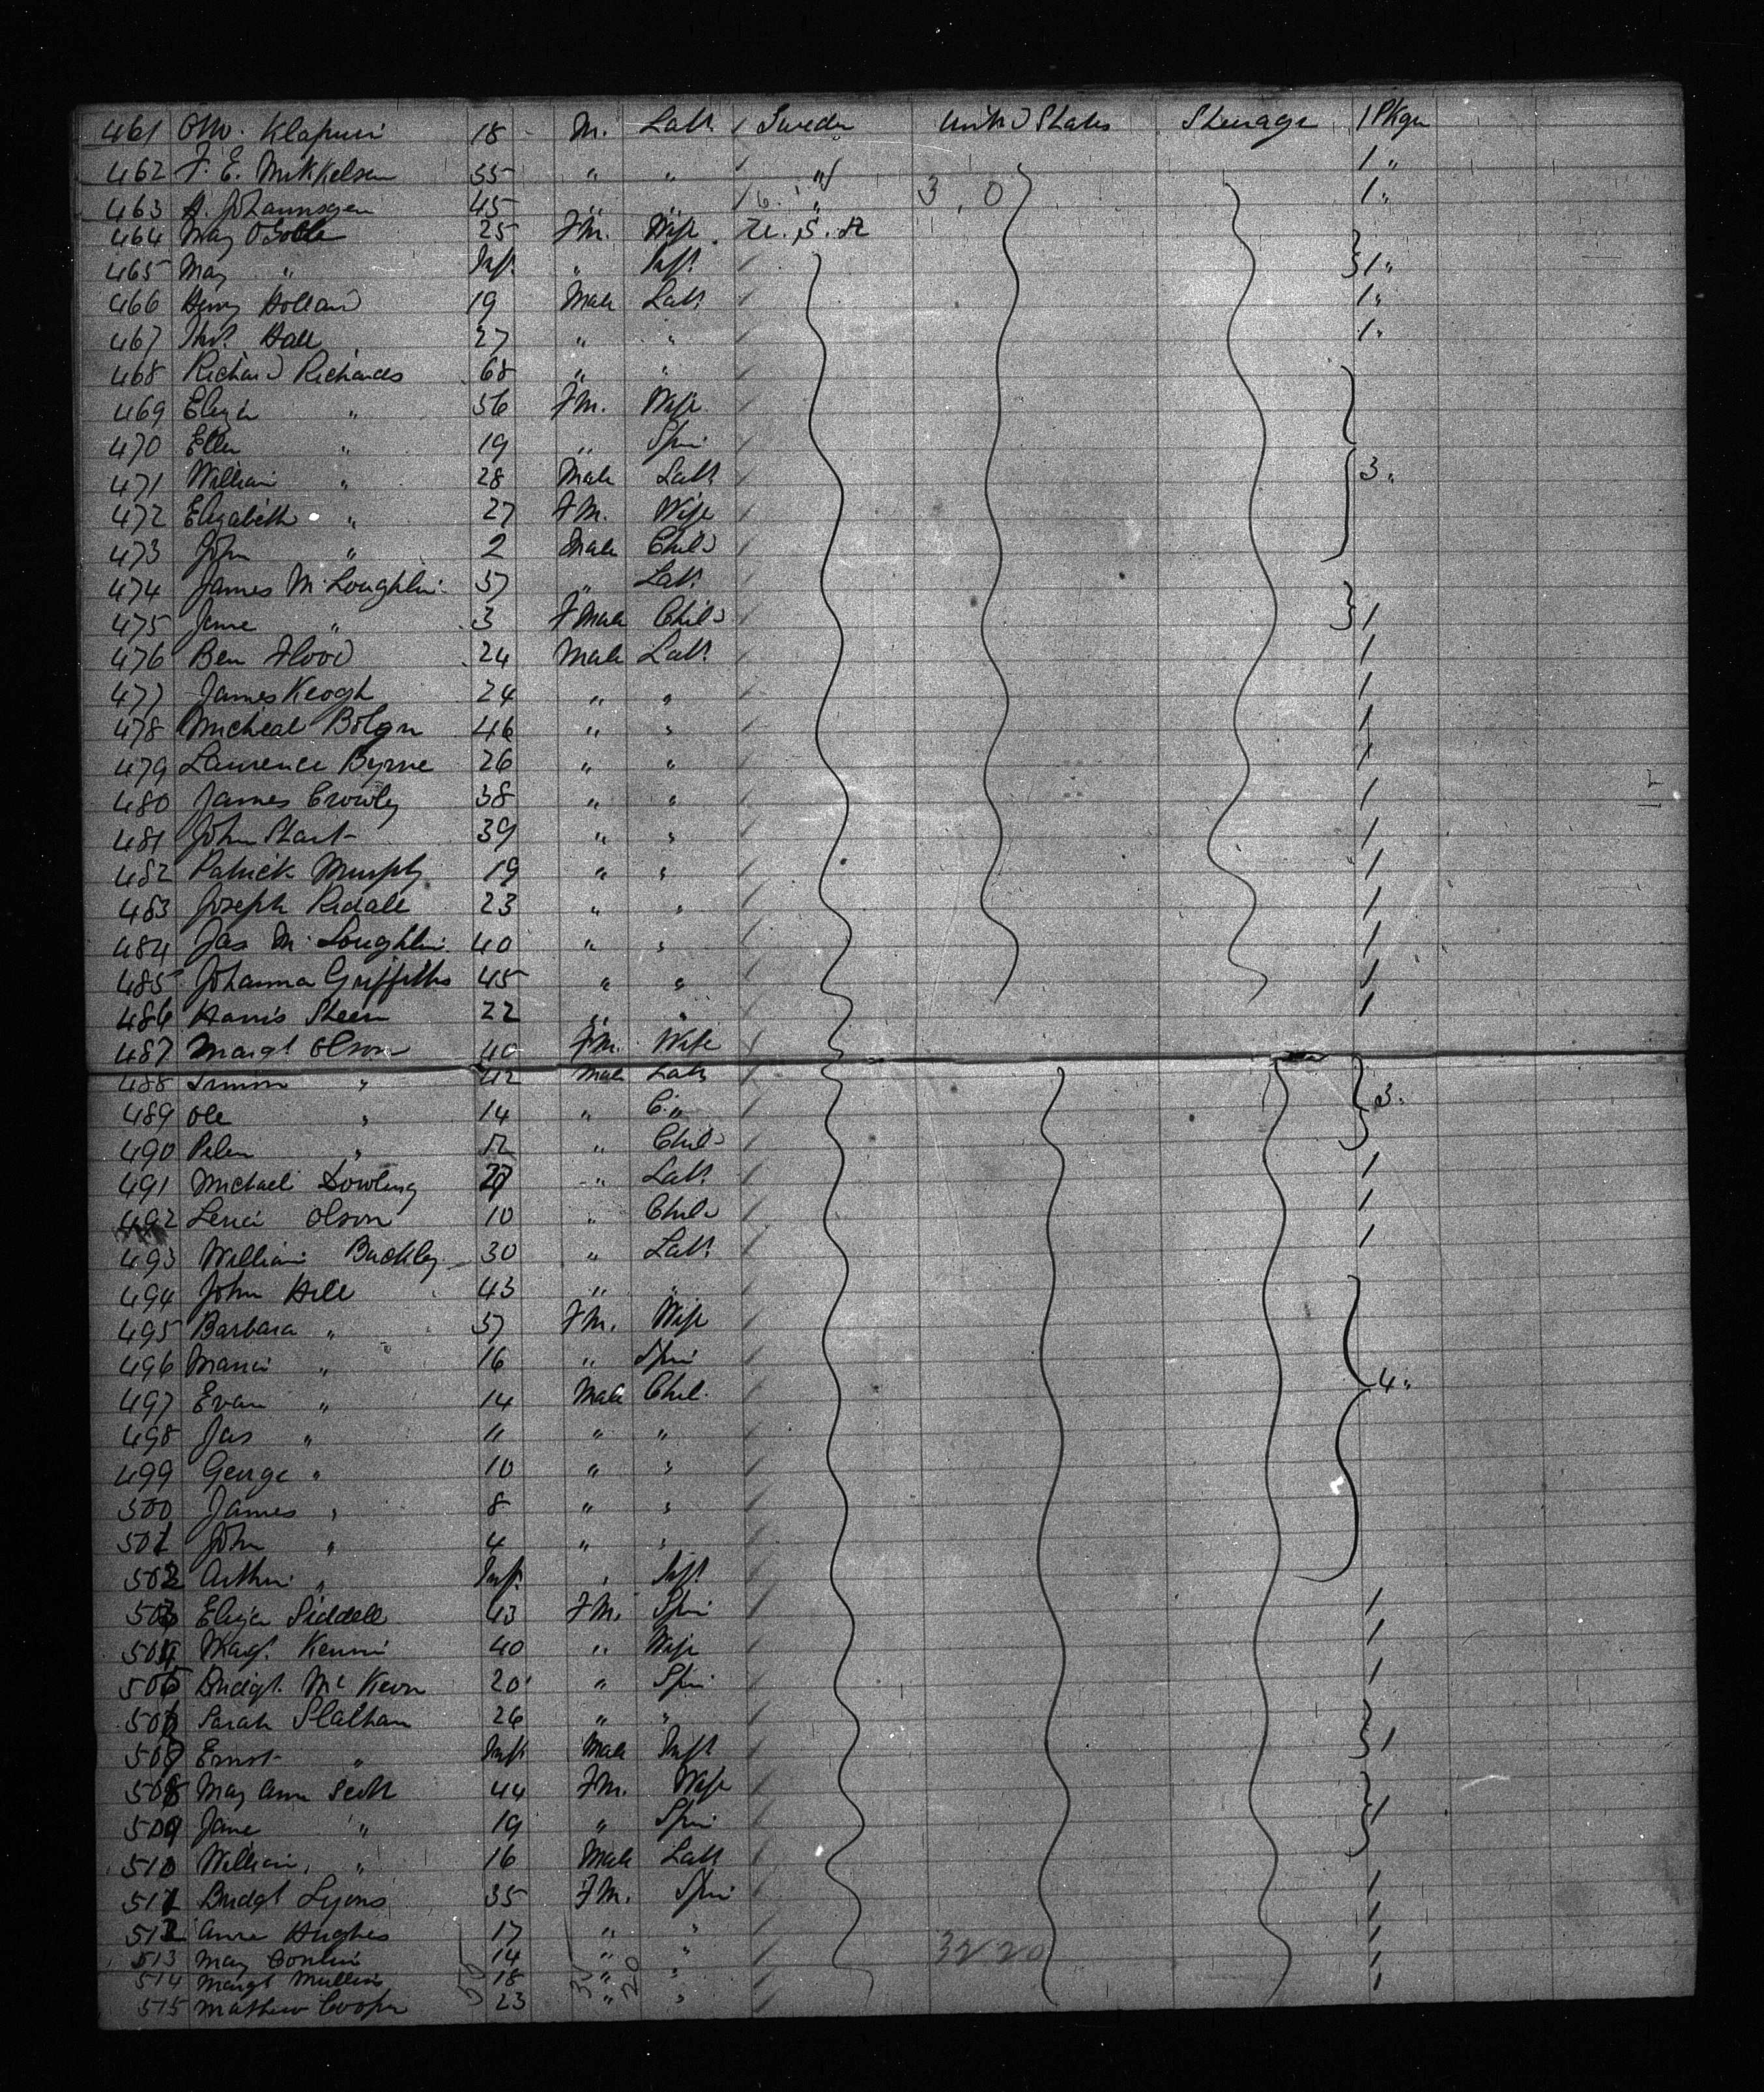 461 Otto. Klapuri 18 M. Labr / Sweden United States Steerage 1 Pkge
462 F. E. Mikkelsen 35 " " / " 1 "
463 A. Johannsgen 45 " " " 3, 0 1 "
464 May 25 Fm. Wife U. S. A
465 May " Inft. " Inft. / 1 "
466 Henry Holland 19 Male Labr / 1 "
467 Thos. Hall 27 " " / 1 "
468 Richard Richards 68 " " /
469 Eliza " 56 Fm. Wife /
470 Ellen " 19 " Spin /
471 William " 28 Male Labr / 3 "
472 Elizabeth " 27 Fm. Wife /
473 John " 2 Male Child /
474 James McLoughlin 37 " Labr /
475 Jane " 3 Fmale Child / 1
476 Ben Flood 24 Male Labr / 1
477 James Keogh 24 " " / 1
478 Micheal Bolgn 46 " " / 1
479 Laurence Byrne 26 " " / 1
480 James Crowley 38 " " / 1
481 John Hart 39 " " / 1
482 Patrick Murphy 19 " " / 1
483 Joseph Ridall 23 " " / 1
484 Jas McLoughlin 40 " " / 1
485 Johanna Griffiths 45 " " / 1
486 Harris Steen 22 " " / 1
487 Margt Olson 40 Fm. Wife /
488 Simon " 42 Male Labr / 3 "
489 Ole " 14 " C. " /
490 Peter " 12 " Child /
491 Michael Dowling 27 " Labr / 1
492 Olson 10 " Child / 1
493 William Buckley 30 " Labr / 1
494 John Hill 43 " " /
495 Barbara " 37 Fm. Wife /
496 " 16 " Spin /
497 Evan " 14 Male Chil. / 4 "
498 Jas " 11 " " /
499 George " 10 " " /
500 James " 8 " " /
501 John " 4 " " /
502 Arthur " Inft. " Inft. /
503 Eliza Siddell 43 Fm. Spin / 1
504 Magt. Kenni 40 " Wife / 1
505 Bridgt. McKeon 20 " Spin / 1
506 Sarah Statham 26 " " /
507 Ernst " Inft Male Inft / 1
508 May Ann Scott 44 Fm. Wife /
509 Jane " 19 " Spin / 1
510 William, " 16 Male Labr /
511 Bridgt Lyons 35 Fm. Spin / 1
512 Anne Hughes 17 " " / 1
513 May Conlin 14 " " / 32 20 1
514 Margt Mullin 18 " " / 1
515 Mathew Cooper 23 " " /
55 35 20